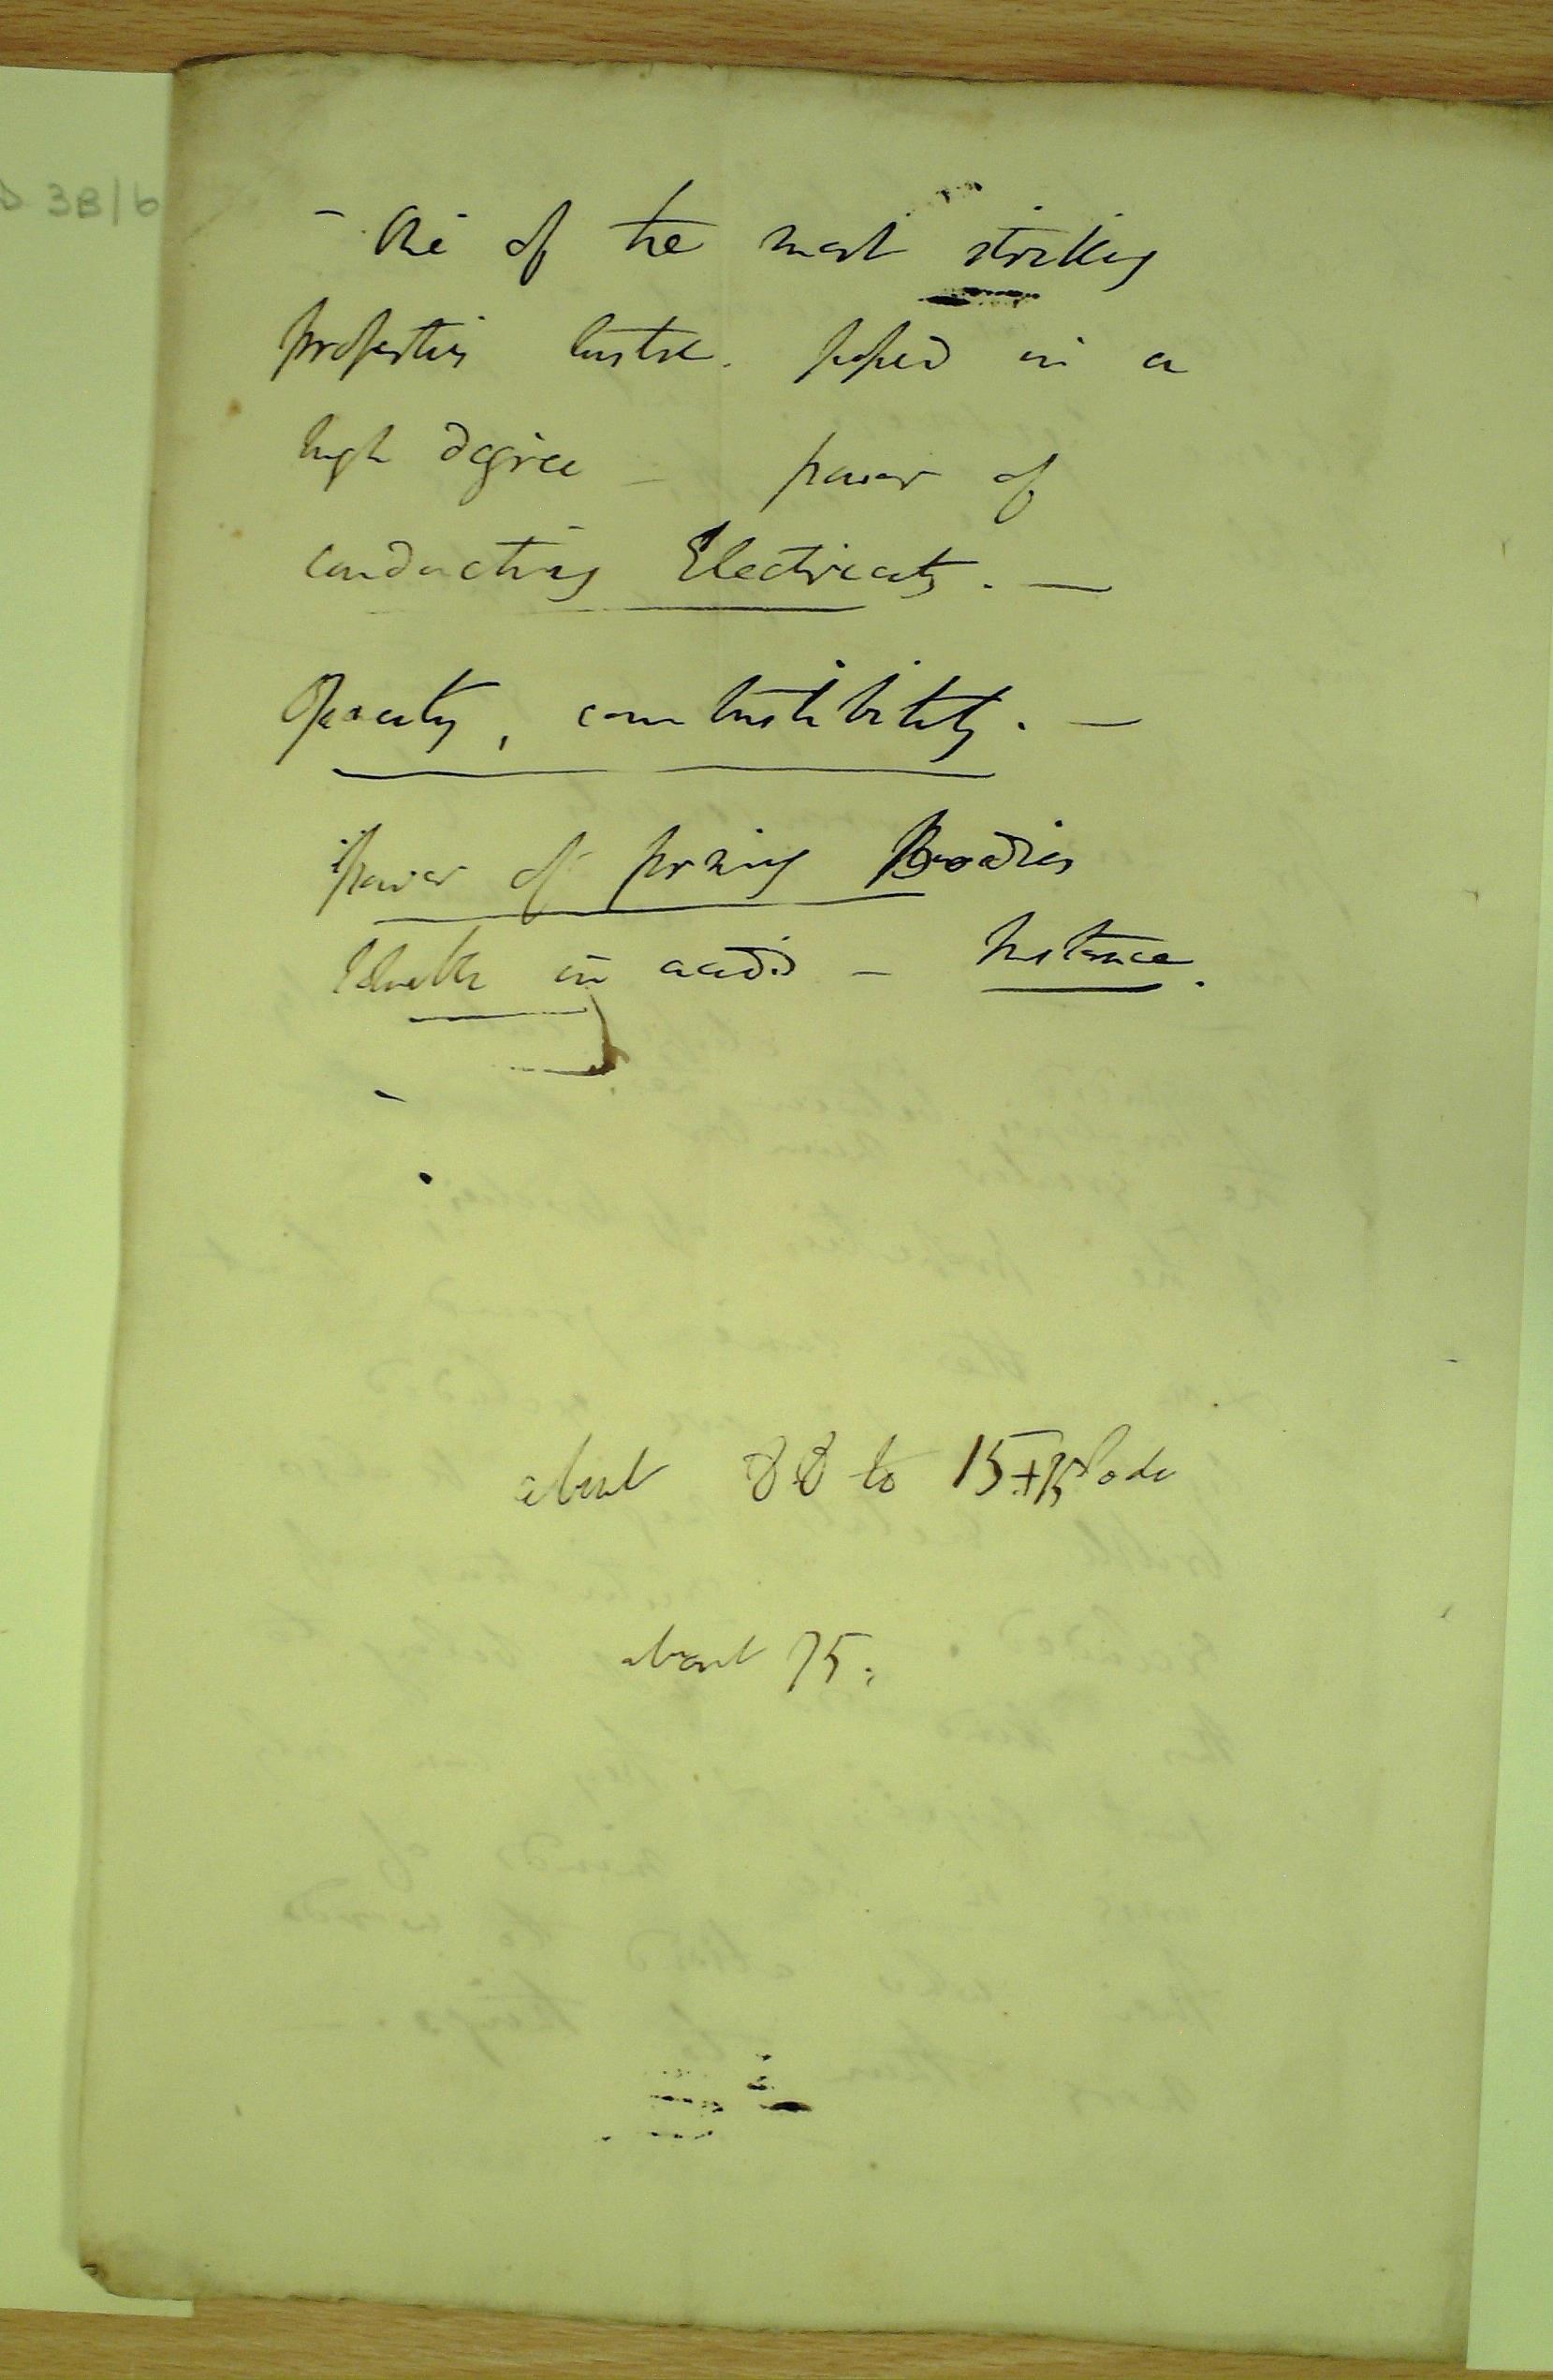 3B/6
- One of the most striking
properties lustre. possessed in a
high degree - power of
conducting Electricity. -
Opacity, combustibility. -
power of forming Bodies
soluble in acids - Instance.
about 88 to 15 Soda
about 75.